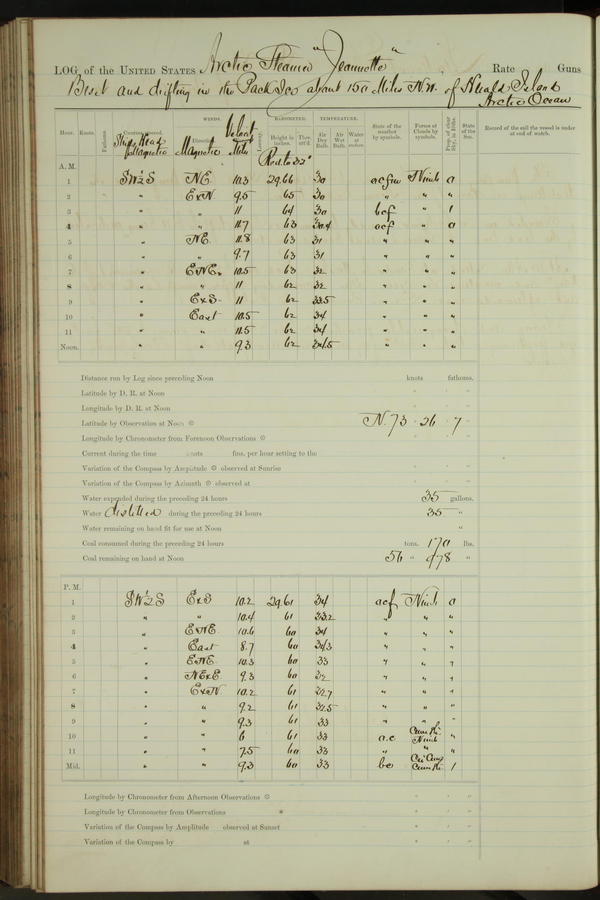 LOG of the UNITED STATES Arctic Steamer "Jeannette", Rate Guns
Beset and drifting in the Pack Ice about 150 Miles N.W. of Herald Island
Arctic Ocean
WINDS. BAROMETER. TEMPERATURE.
Hour. Knots. Fathoms. Ship's Head Magnetic Direction. Magnetic Velocity Miles Leeway. Height in inches. Ther. att'd. Air Dry Bulb. Air Wet Bulb. Water at surface. State of the weather by symbols. Forms of Clouds by symbols. State of the Sea. Record of the sail the vessel is under at end of watch.
Red. to 32°
A.M.
1 SW½S NE 10.3 29.66 30 Nimb 0
2 " ExN 9.5 65 30 " " "
3 " " 11 64 30 bcf " 1
4 " " 11.7 63 30.4 ocf " 0
5 " NE 11.8 63 31 " " "
6 " " 9.7 63 31 " " "
7 " ENE 10.5 63 32 " " "
8 " " 11 62 32 " " "
9 " ExS 11 62 33.5 " " "
10 " East 10.5 62 34 " " "
11 " " 11.5 62 34 " " "
Noon. " " 9.3 62 34.5 " " "
Distance run by Log since preceding Noon knots fathoms.
Latitude by D. R. at Noon ° ' "
Longitude by D. R. at Noon ° ' "
Latitude by Observation at Noon N. 73 26 7
Longitude by Chronometer from Forenoon Observations ° ' "
Current during the time knots fms. per hour setting to the
Variation of the Compass by Amplitude observed at Sunrise ° ' "
Variation of the Compass by Azimuth observed at ° ' "
Water expended during the preceding 24 hours 35 gallons.
Water distilled during the preceding 24 hours 35 "
Water remaining on hand fit for use at Noon "
Coal consumed during the preceding 24 hours tons. 170 lbs.
Coal remaining on hand at Noon 56 " 978 "
P.M.
1 SW½S ExS 10.2 29.61 34 ocf Nimb 0
2 " " 10.4 61 33.2 " " "
3 " ENE 10.6 60 34 " " "
4 " East 8.7 60 34.3 " " "
5 " ENE 10.3 60 33 " " "
6 " NExE 9.3 60 " " "
7 " ExN 10.2 61 " " "
8 " " 9.2 61 32.5 " " "
9 " " 9.3 61 33 " " "
10 " " 6 61 33 o.c. Nimb "
11 " " 7.5 60 33 " " "
Mid. " " 9.3 60 33 bc 1
Longitude by Chronometer from Afternoon Observations ° ' "
Longitude by Chronometer from Observations ° ' "
Variation of the Compass by Amplitude observed at Sunset ° ' "
Variation of the Compass by at ° ' "